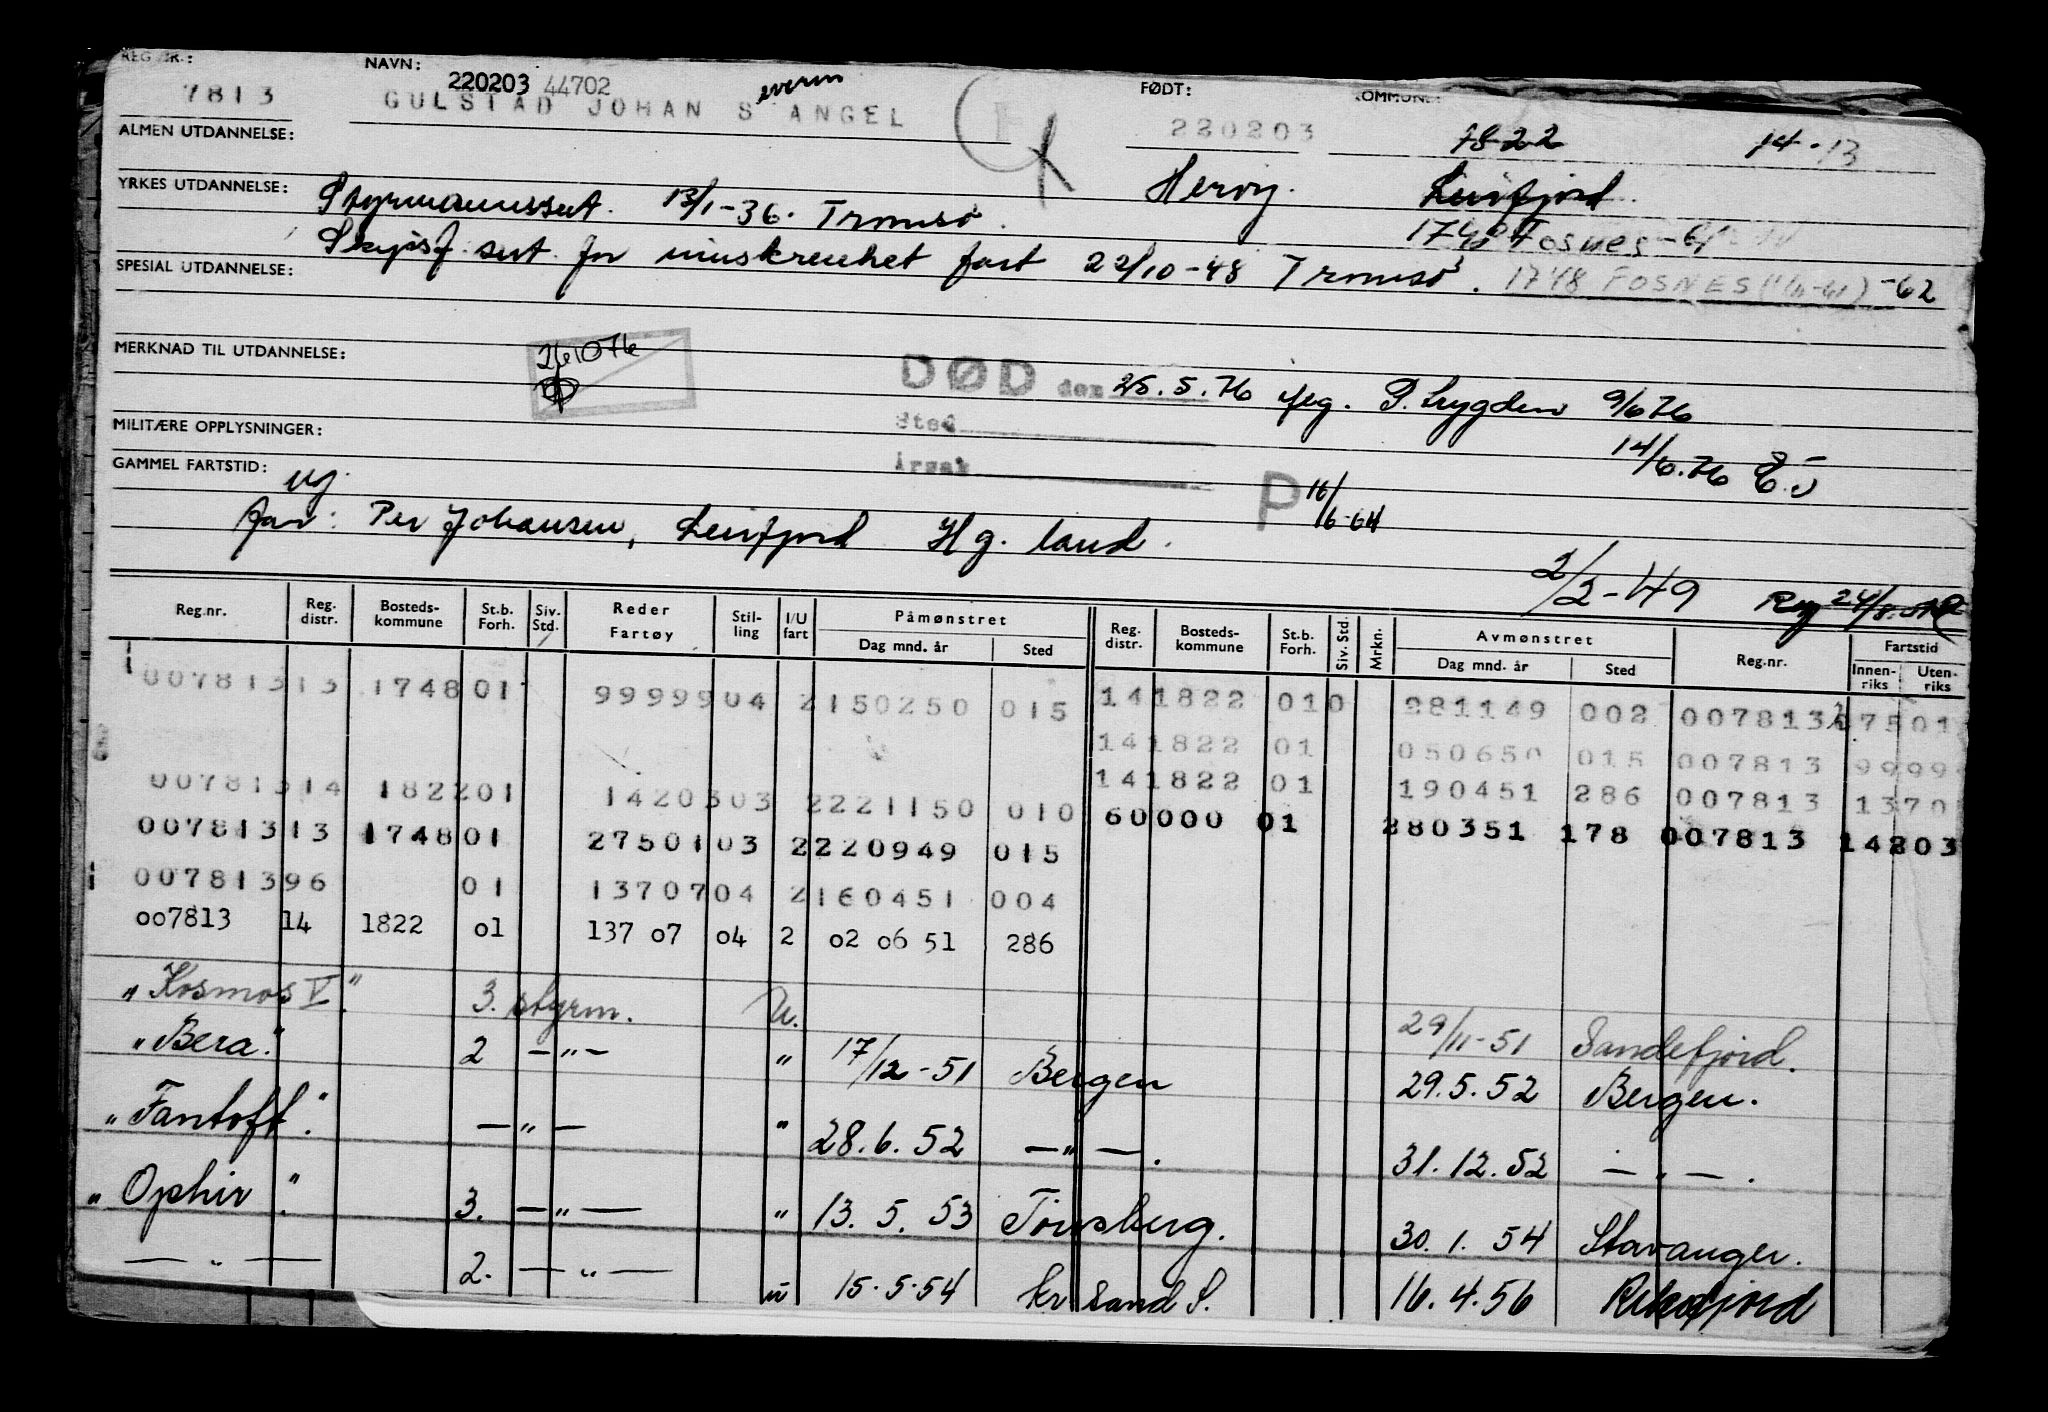 REG. NR.: NAVN: FØDT: KOMMUNE:
220203 44702
7813 GULSTAD JOHAN S ANGEL 220203 1822 14-13
everin
ALMEN UTDANNELSE:
Herøy. Leirfjord.
YRKES UTDANNELSE: Styrmannssert. 13/1-36. Tromsø.
1748 Fosnes-61
Skipsf. sert. for innskrenket fart 22/10-48 Tromsø. 1748 FOSNES (1/11-61) -62
SPESIAL UTDANNELSE:
MERKNAD TIL UTDANNELSE:
261076
DØD den 25.5.76 iflg. P.trygden 9/6 76
Sted
14/6.76 E.J
MILITÆRE OPPLYSNINGER:
Årsak
GAMMEL FARTSTID: ug.
P 16/6-64
far: Per Johansen, Leirfjord Hg. land.
2/2-49 Reg 24/8.
Reg.nr. Reg. distr. Bosteds-kommune St.b. Forh. Siv. Std. Reder Fartøy Stil-ling I/U fart Påmønstret Dag mnd. år Sted Reg. distr. Bosteds-kommune St.b. Forh. Siv. Std. Mrkn. Avmønstret Dag mnd. år Sted Reg.nr. Fartstid Innen-riks Uten-riks
00781313 174801 9999904 2150250 015 141822 010 281149 002 007813 07501
141822 01 050650 015 007813 9999
00781314 182201 1420303 2221150 010 141822 01 190451 286 007813 1370
00781313 174801 2750103 2220949 015 60000 01 280351 178 007813 14203
00781396 01 1370704 2160451 004
007813 14 1822 01 137 07 04 2 02 06 51 286
"Kosmos V." 3. styrm. U. 29/11-51 Sandefjord.
"Bera." 2 —"— " 17/12-51 Bergen 29.5.52 Bergen.
"Fantoft". —"— " 28.6.52 —"—. 31.12.52 —"—.
"Ophir". 3. —"— " 13.5.53 Tønsberg. 30.1.54 Stavanger.
—"— 2. —"— u 15.5.54 Kr sand S. 16.4.56 Rekefjord